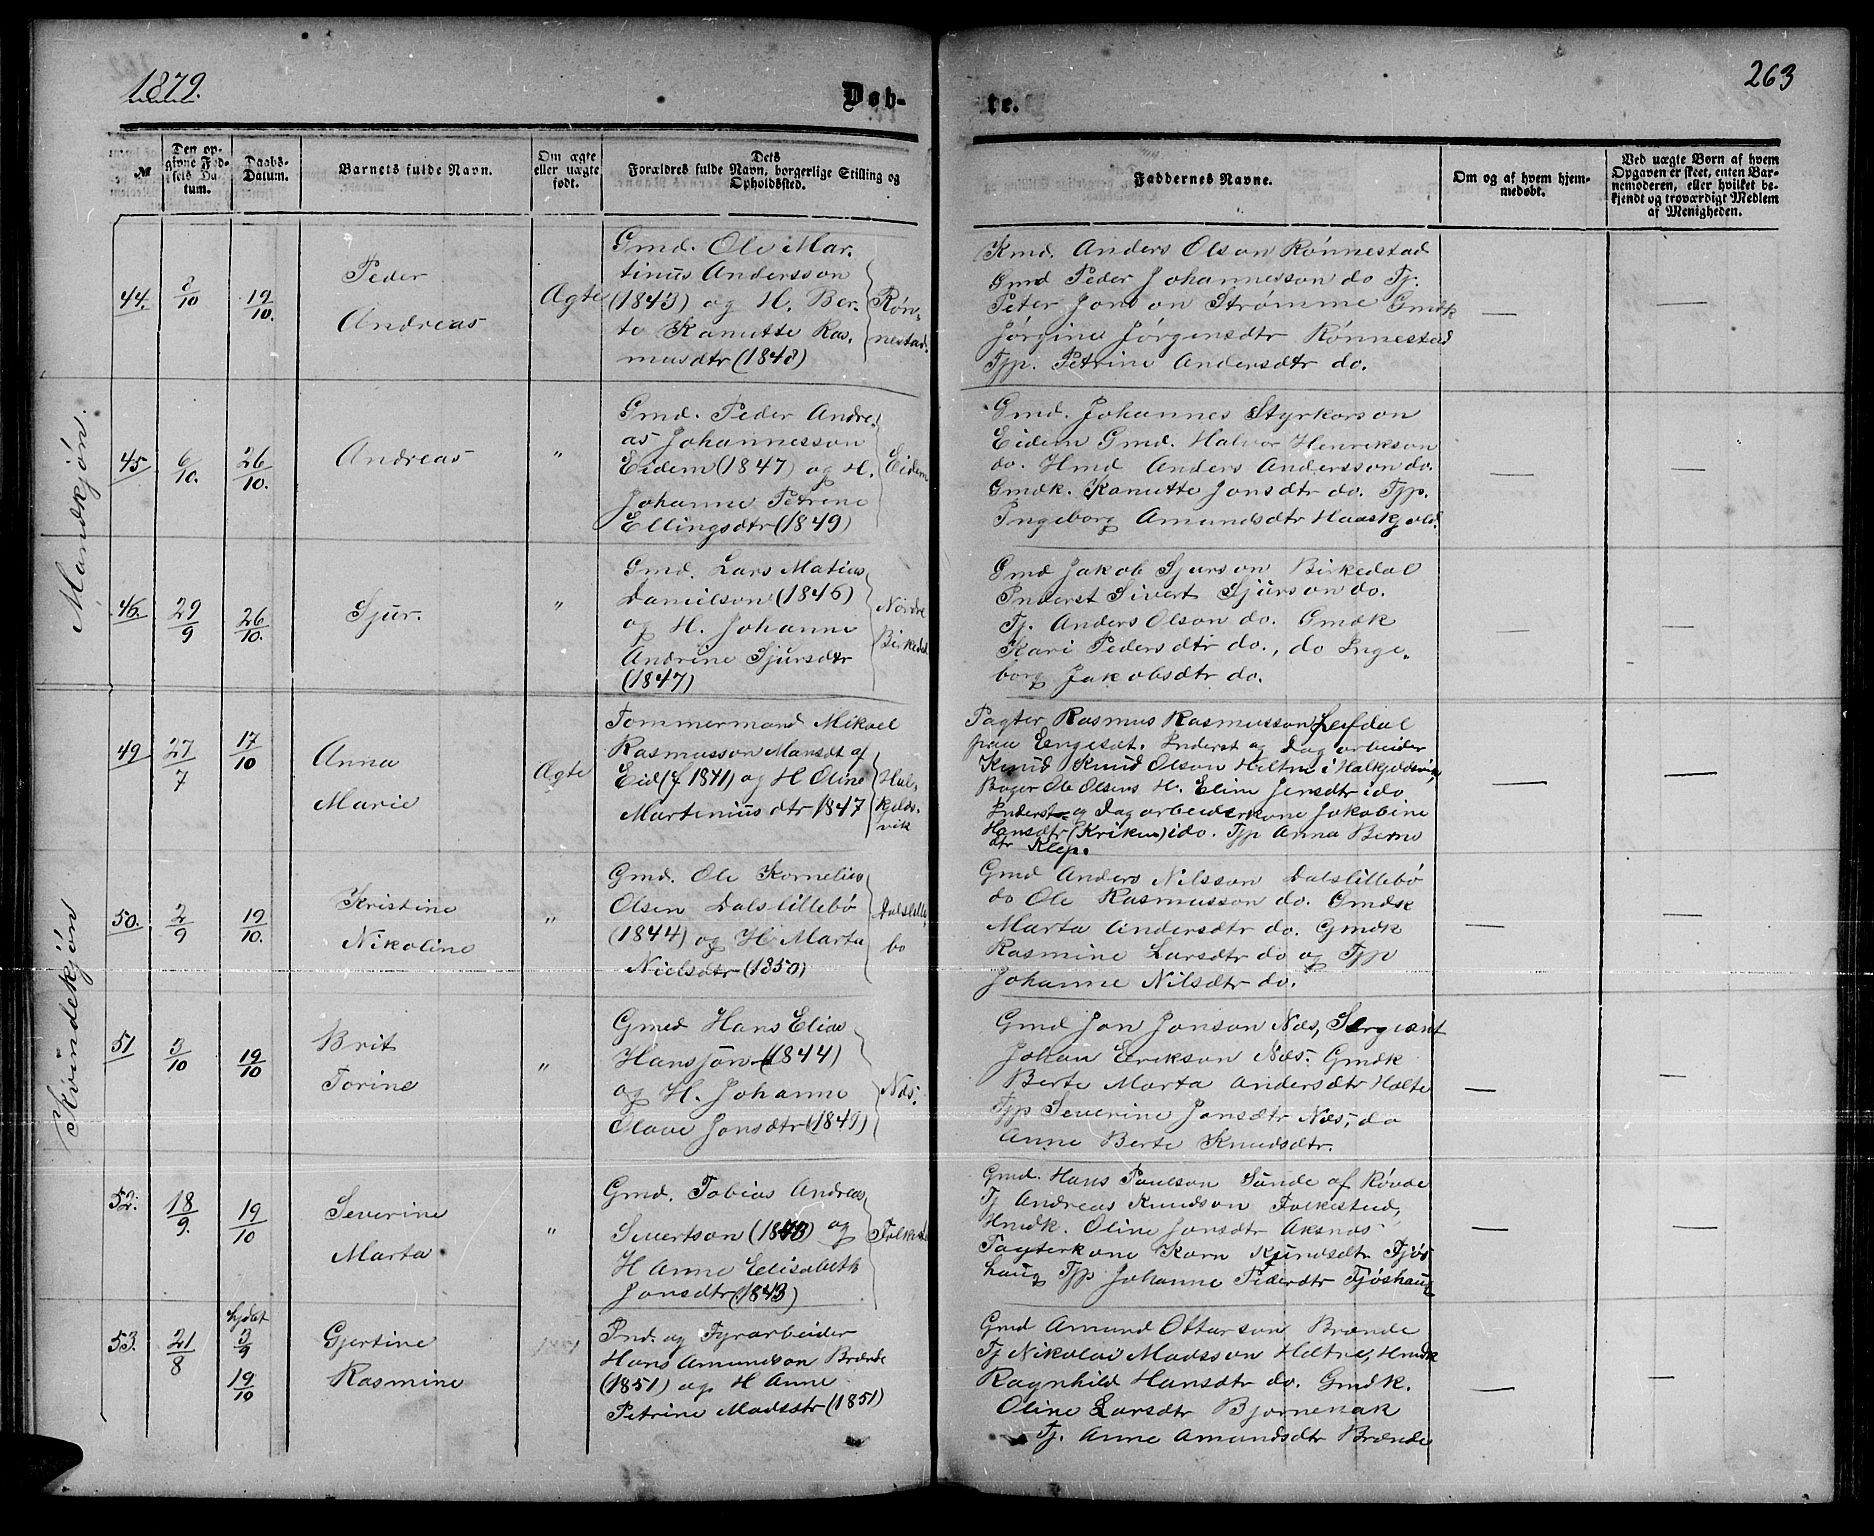 1879.
263
Døb-
te.
№
Den op-
givne Fød-
sels Da-
tum.
Daabs-
Datum.
Barnets fulde Navn.
Om ægte
eller uægte
født.
Dets
Forældres fulde Navn, borgerlige Stilling og
Opholdssted.
Faddernes Navne.
Om og af hvem hjem-
medøbt.
Ved uægte Børn af hvem
Opgaven er skeet, enten Bar-
nemoderen, eller hvilket be-
kjendt og troværdigt Medlem
af Menigheden.
Mandkjøn.
44.
/10
19/10.
Peder
Andreas
Ægte
Gmd. Ole Mar-
tinus Andersson
(1843) og H. Ber-
te Kanutte Ras-
musdtr (1848)
Røn-
nestad.
Kmd. Anders Olson Rønnestad
Gmd Peder Johannesson do Tj.
Peter Jonson Strømme Gmdk
Jørgine Jørgensdtr Rønnestad
Tjp. Petrine Andersdtr do.
—
—
45.
6/10.
26/10.
Andreas
"
Gmd. Peder Andre-
as Johannesson
Eidem (1847) og H.
Johanne Petrine
Ellingsdtr (1849)
Eidem
Gmd. Johannes Styrkorson
Eidem Gmd. Halvor Henrikson
do. Hmd Anders Andersson do.
Gmdk. Kanutte Jonsdtr do. Tjp.
Ingeborg Amundsdtr Haaskjold.
—
—
46.
29/9
26/10.
Sjur.
"
Gmd. Lars Matias
Danielson (1846)
og H. Johanne
Andrine Sjursdtr
(1847)
Nordre
Birkedal
Gmd Jakob Sjurson Birkedal
Inderst Sivert Sjurson do.
Tj. Anders Olson do. Gmdk
Kari Pedersdtr do., do Inge-
borg Jakobsdtr do.
—
—
Kvindekjøn
49
27/7
17/10
Anna
Marie
Ægte
Tommermand Mikael
Rasmusson Mansdt af
Eid (f 1871) og H Oline
Martiniusdtr 1847
Hal-
kjelds-
vik
Pagter Rasmus Rasmusson Lefdal
paa Engesdt. Inderst og Dagarbeider
Knud Knud Olson Heltne i Halkjeldsvik,
Bager Ole Olsens H. Eline Jensdtr ido
Inderst og Dagarbeiderkone Jakobine
Hansdtr (Kriken) ido. Tjp Anna Bernt
dtr Klep.
—
—
50.
2/9
19/10.
Kristine
Nikoline
"
Gmd. Ole Kornelius
Olsen Dalslillebø
(1844) og H. Marta
Nielsdtr (1850)
Dalslille-
bø
Gmd Anders Nilsson Dalslillebø
do Ole Rasmusson do. Gmdsk
Marta Andersdtr do. Gmdk
Rasmine Larsdtr do og Tjp
Johanne Nilsdtr do.
—
—
51
3/10
19/10
Brit
Torine
"
Gmed Hans Elias
Hansjøn (1844)
og H. Johanne
Olave Jonsdtr (1849)
Næs.
Gmd Jon Jonson Næs, Sergeant
Johan Erikson Næs. Gmdk
Berte Marta Andersdtr Holte
Tjp Severine Jonsdtr Næs, do
Anne Berte Knudsdtr.
—
—
52.
18/9.
19/10
Severine
Marta
"
Gmd. Tobias Andreas
Sivertson (1843) og
H Anne Elisabeth
Jonsdtr (1843)
Folkestd
Gmd. Hans Paulson Sunde af Røvde
Tj Andreas Knudson Folkestad,
Hmdk. Oline Jonsdtr Aksnæs
Pagterkone Karn Knudsdtr Fjøs-
haug Tjp Johanne Pedersdtr Fjøshaug
—
—
53.
21/8
hjdøbt
3/9
19/10
Gjertine
Rasmine
Ind. og Fyrarbeider
Hans Amundson Brænde
(1851) og H Anne
Petrine Madsdtr (1851)
Gmd Amund Ottarson Brænde
Tj Nikolai Madsson Heltne, Hmdk
Ragnhild Hansdtr do. Gmdk.
Oline Larsdtr Bjørnenak
Tj. Anne Amundsdtr Brænde
—
—